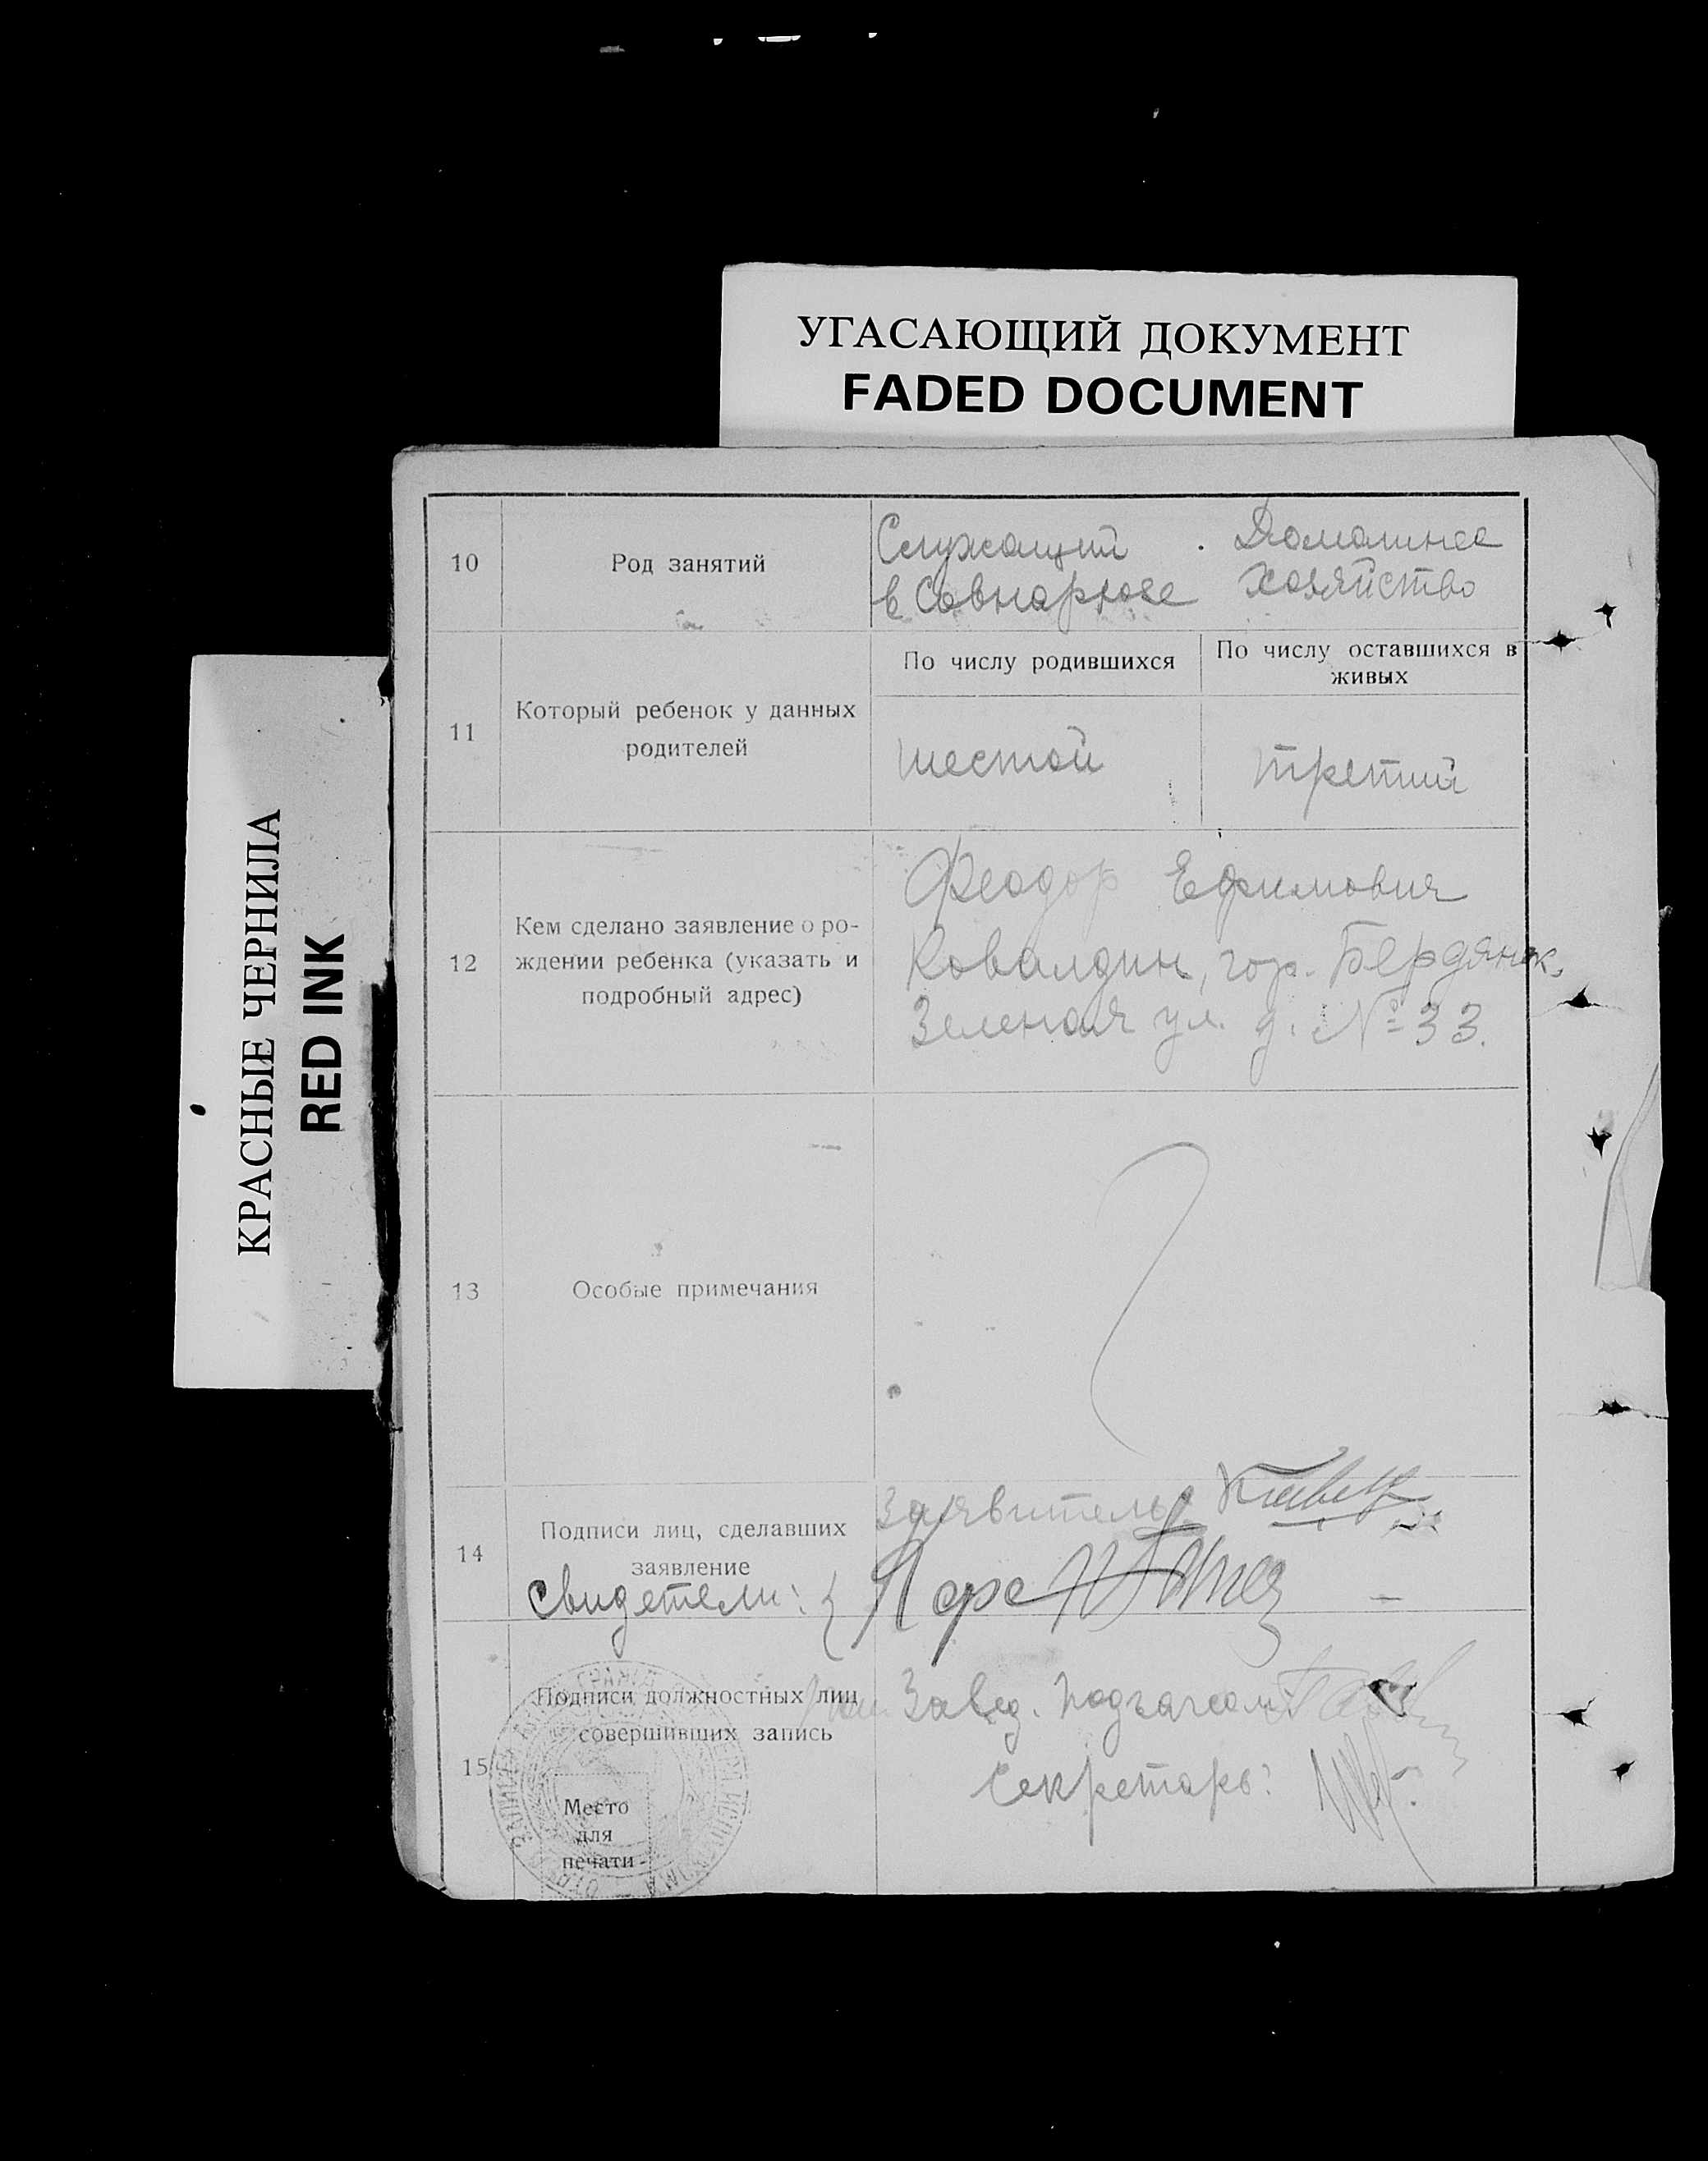 УГАСАЮЩИЙ ДОКУМЕНТ
FADED DOCUMENT
КРАСНЫЕ ЧЕРНИЛА
RED INK
10
Род занятий
Служащий
в Совнархозе
Домашнее
хозяйство
11
Который ребенок у данных
родителей
По числу родившихся
По числу оставшихся в
живых
шестой
третий
12
Кем сделано заявление о ро-
ждении ребенка (указать и
подробный адрес)
Феодор Ефимович
Ковалдин, гор. Бердянск,
Зеленая ул. д. № 33.
13
Особые примечания
14
Подписи лиц, сделавших
заявление
Свидетели:
Заявитель:
15
Подписи должностных лиц
совершивших запись
Место
для
печати
Завед. Подзагсом
Секретарь: